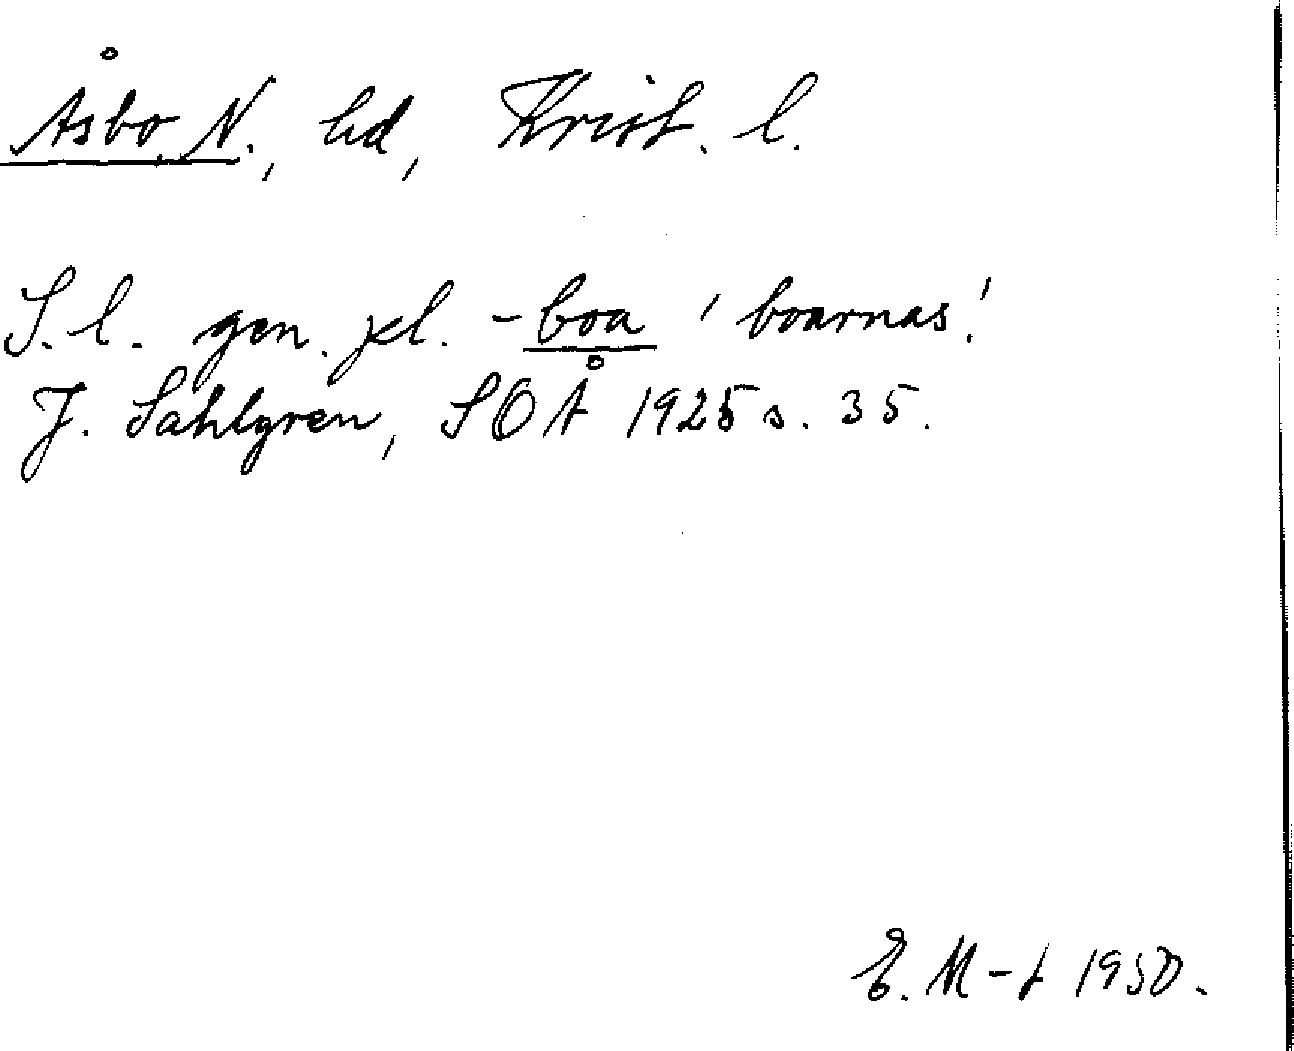 Åsbo N., hd, Krist. l.
S. l. gen. pl. -boa 'boarnas'.
J. Sahlgren, SOÅ 1925 s. 35.
E. M-t 1950.